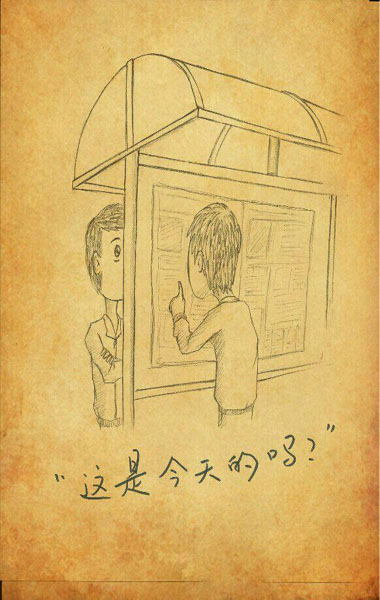 “这是今天的吗？”